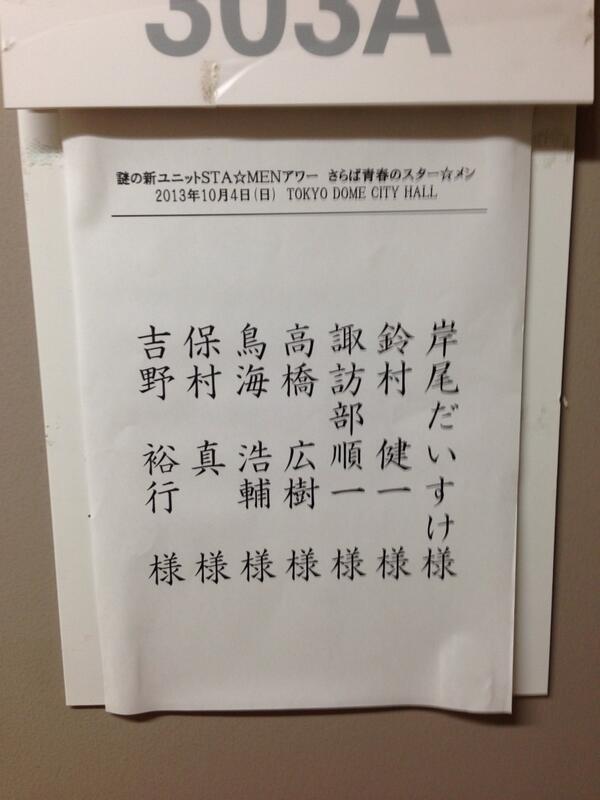 303A
謎の新ユニットSTA☆MENアワー さらば青春のスター☆メン
2013年10月4日(日) TOKYO DOME CITY HALL
岸尾だいすけ様
鈴村 健一 様
諏訪部順一 様
高橋 広樹 様
鳥海 浩輔 様
保村 真 様
吉野 裕行 様